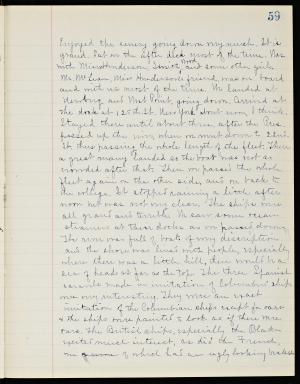 59
Enjoyed the scenery going down very much. It is
grand. Sat on the after deck most of the time. Was
with Miss Henderson, and some other girls.
Mr. McLean, Miss Henderson's friend, was on board
and with us most of the time. We landed at
Newburg and West Point going down. Arrived at
the dock at 125th St. New York about noon, I think.
Stayed there until about three after the Pres.
passed up the river when we went down to 22nd
St. thus passing the whole length of the fleet. There
a great many landed so the boat was not so
crowded after that. Then we passed the whole
fleet again on the other side, and on back to
the college. It stopped raining a little after
noon but was not very clear. The ships were
all grand and terrible. We saw some ocean
steamers at their docks as we passed down.
The river was full of boats of every description
and the shore was lined with people, especially
where there was a little hill, there would be a
sea of heads as far as the top. The three Spanish
caravels made in imitation of Columbus' ships
were very interesting. They were an exact
imitation of the Columbian ships except for oars
& the ships were painted to look as if there were
oars. The British ships, especially the Blake
excited much interest, as did the French,
one of which has an ugly looking